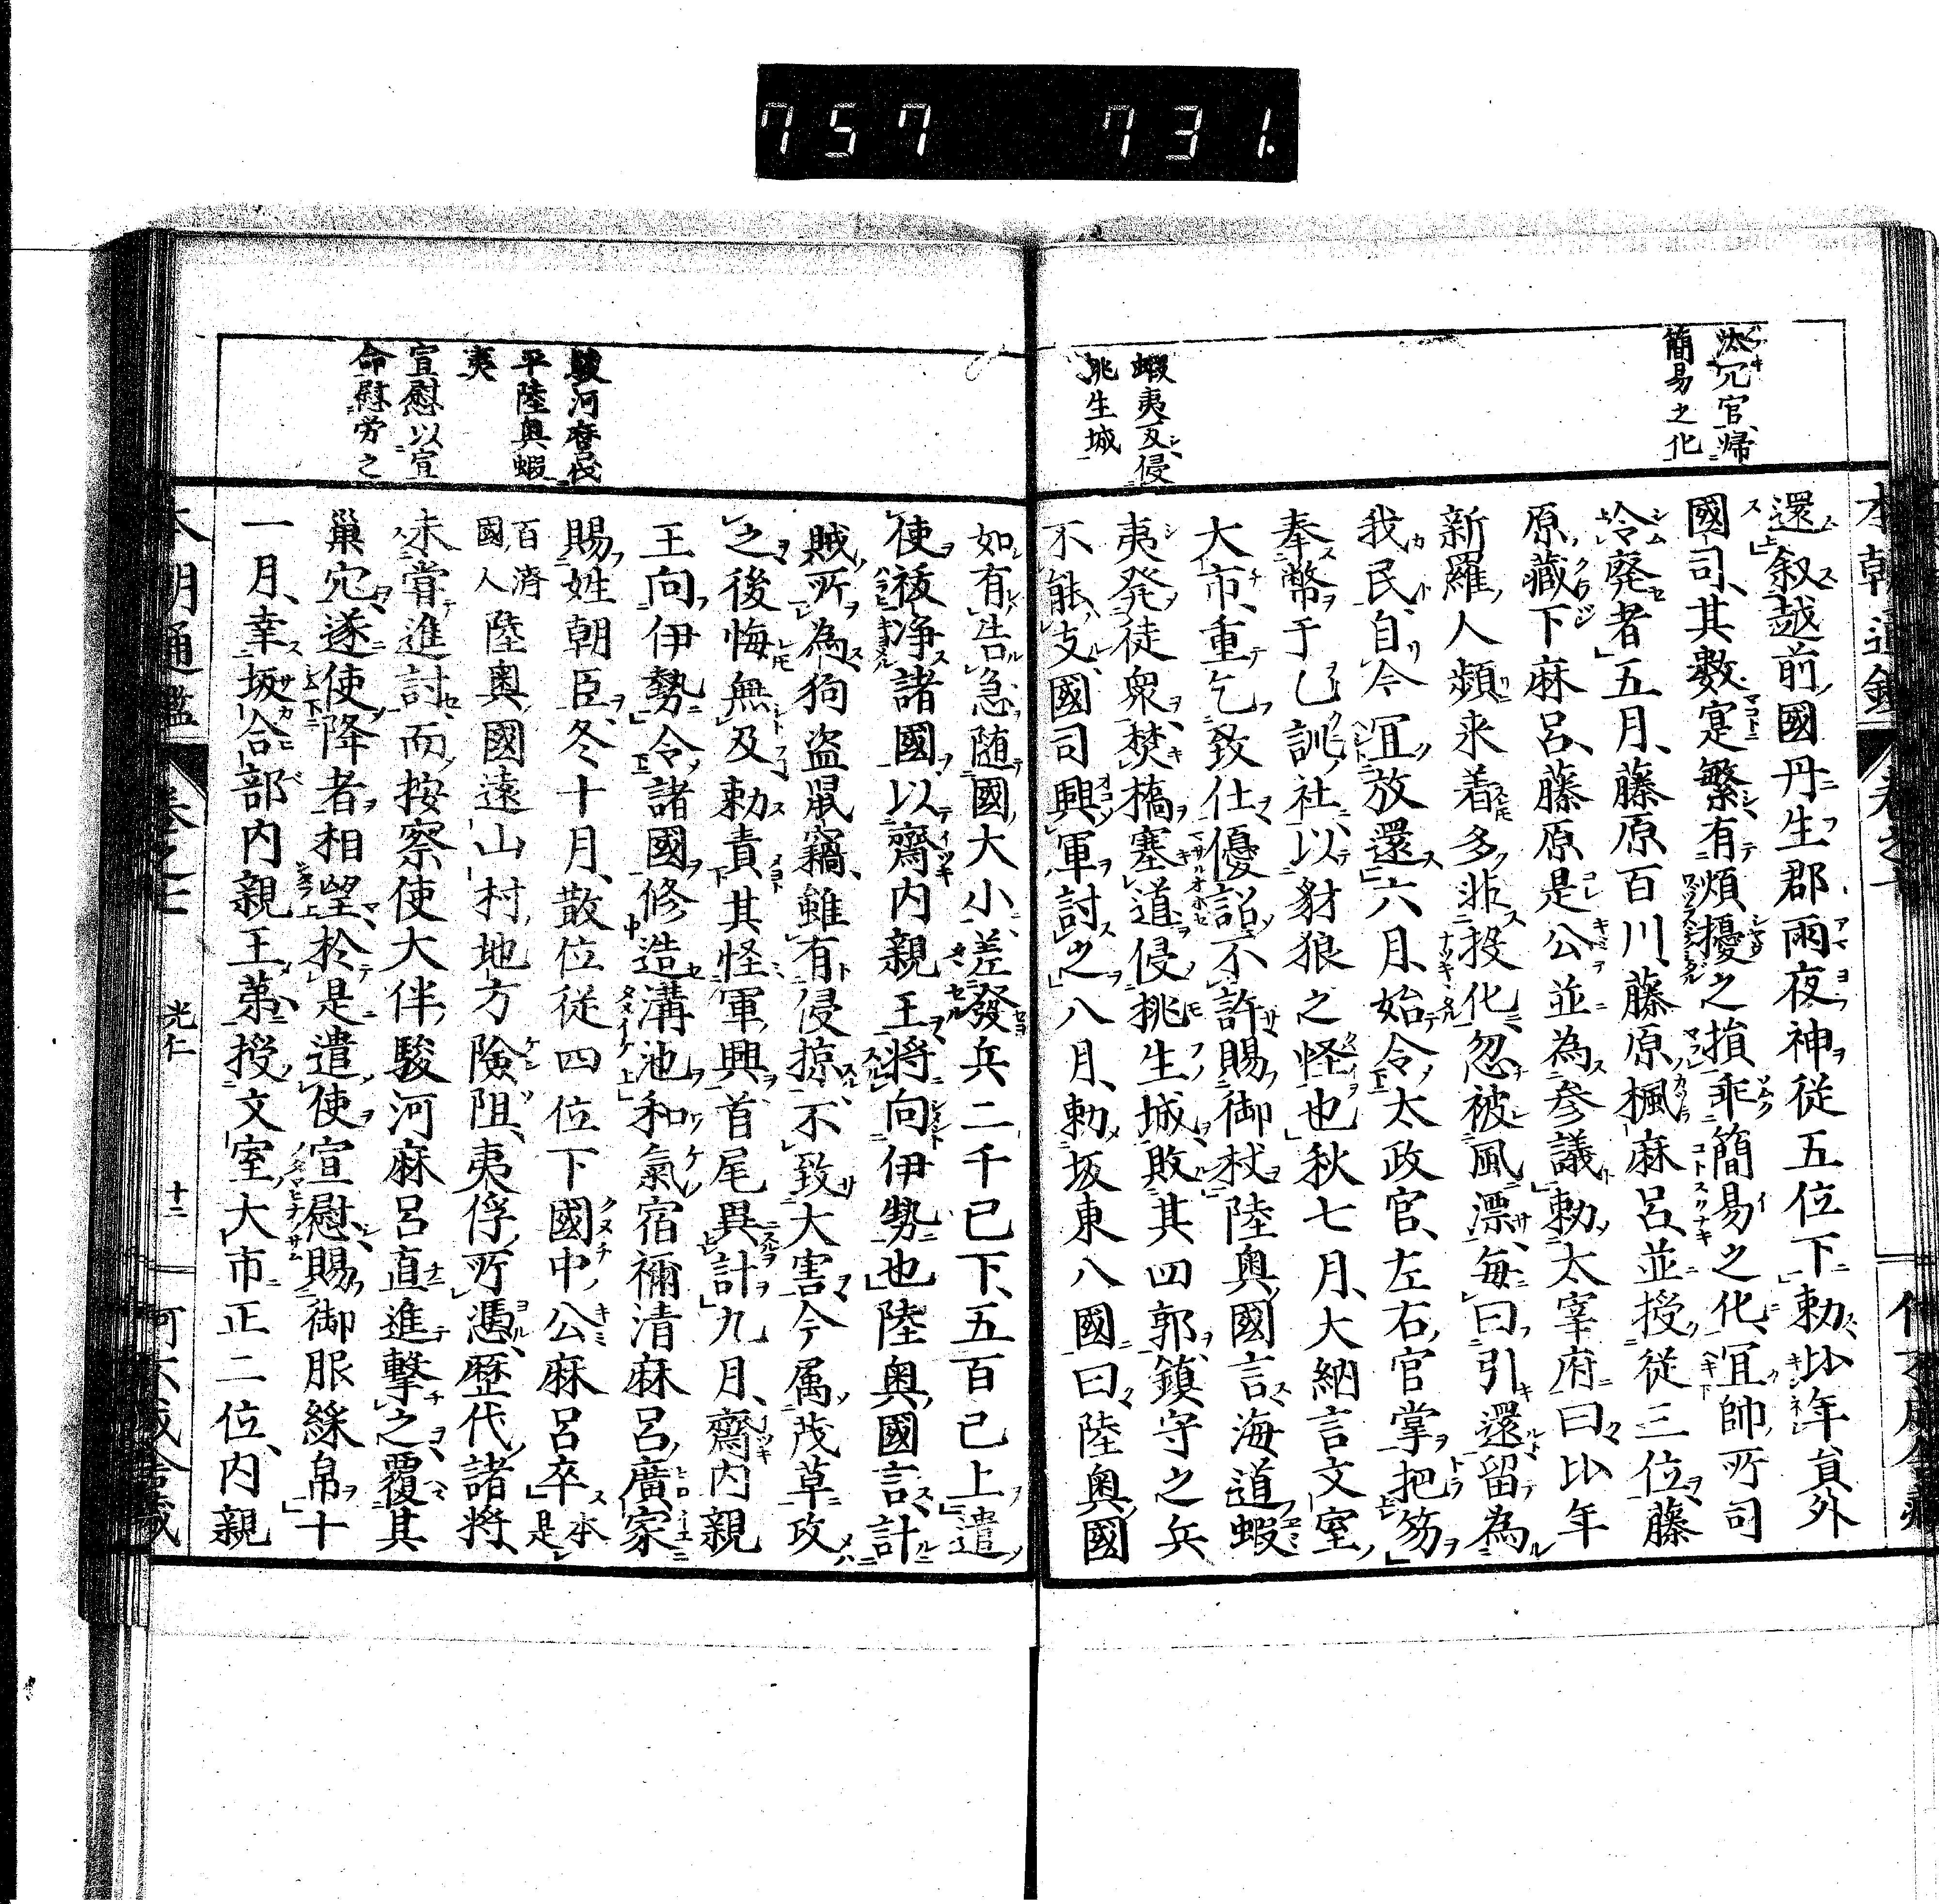 757 731.
汰冗官歸
簡易之化
蝦夷叉侵
桃生城
還叙越前國丹生郡雨夜神從五位下勅比年貟外
國司其數寔繁有煩擾之損乖簡易之化冝帥所司
泠廃者五月藤原百川藤原楓麻呂並授從三位藤
原藏下麻呂藤原是公並為参議勅太宰府曰比年
新羅人頻来着多非投化忽被風漂毎曰引還留為
我民自今冝放還六月始令太政官左右官掌把笏
奉幣于乙訓社以豺狼之怪也秋七月大納言文室
大市重乞致仕優詔不許賜御杖陸奥國言海道蝦
夷発徒衆焚橋塞道侵桃生城敗其四郭鎮守之兵
不能支國司興軍討之八月勅坂東八國曰陸奥國
駿河麿伐
平陸奥蝦
夷
宣慰以宣
命慰労之
如有告急随國大小差發兵二千已下五百已上遣
使祓浄諸國以齋内親王將向伊勢也陸奥國言計
賊所為狗盗鼠竊雖有侵掠不致大害今属茂草攻
之後悔無及勅責其怪軍興首尾異計九月齋内親
王向伊勢令諸國修造溝池和氣宿禰清麻呂廣家
賜姓朝臣冬十月散位従四位下國中公麻呂卒本是
百濟國人陸奥國遠山村地方険阻夷俘所憑歴代諸將
未甞進討而按察使大伴駿河麻呂直進撃之覆其
巣宂遂使降者相望於是遣使宣慰賜御服綵帛十
一月幸坂合部内親王第授文室大市正二位内親
本朝通鑑
光仁
十二